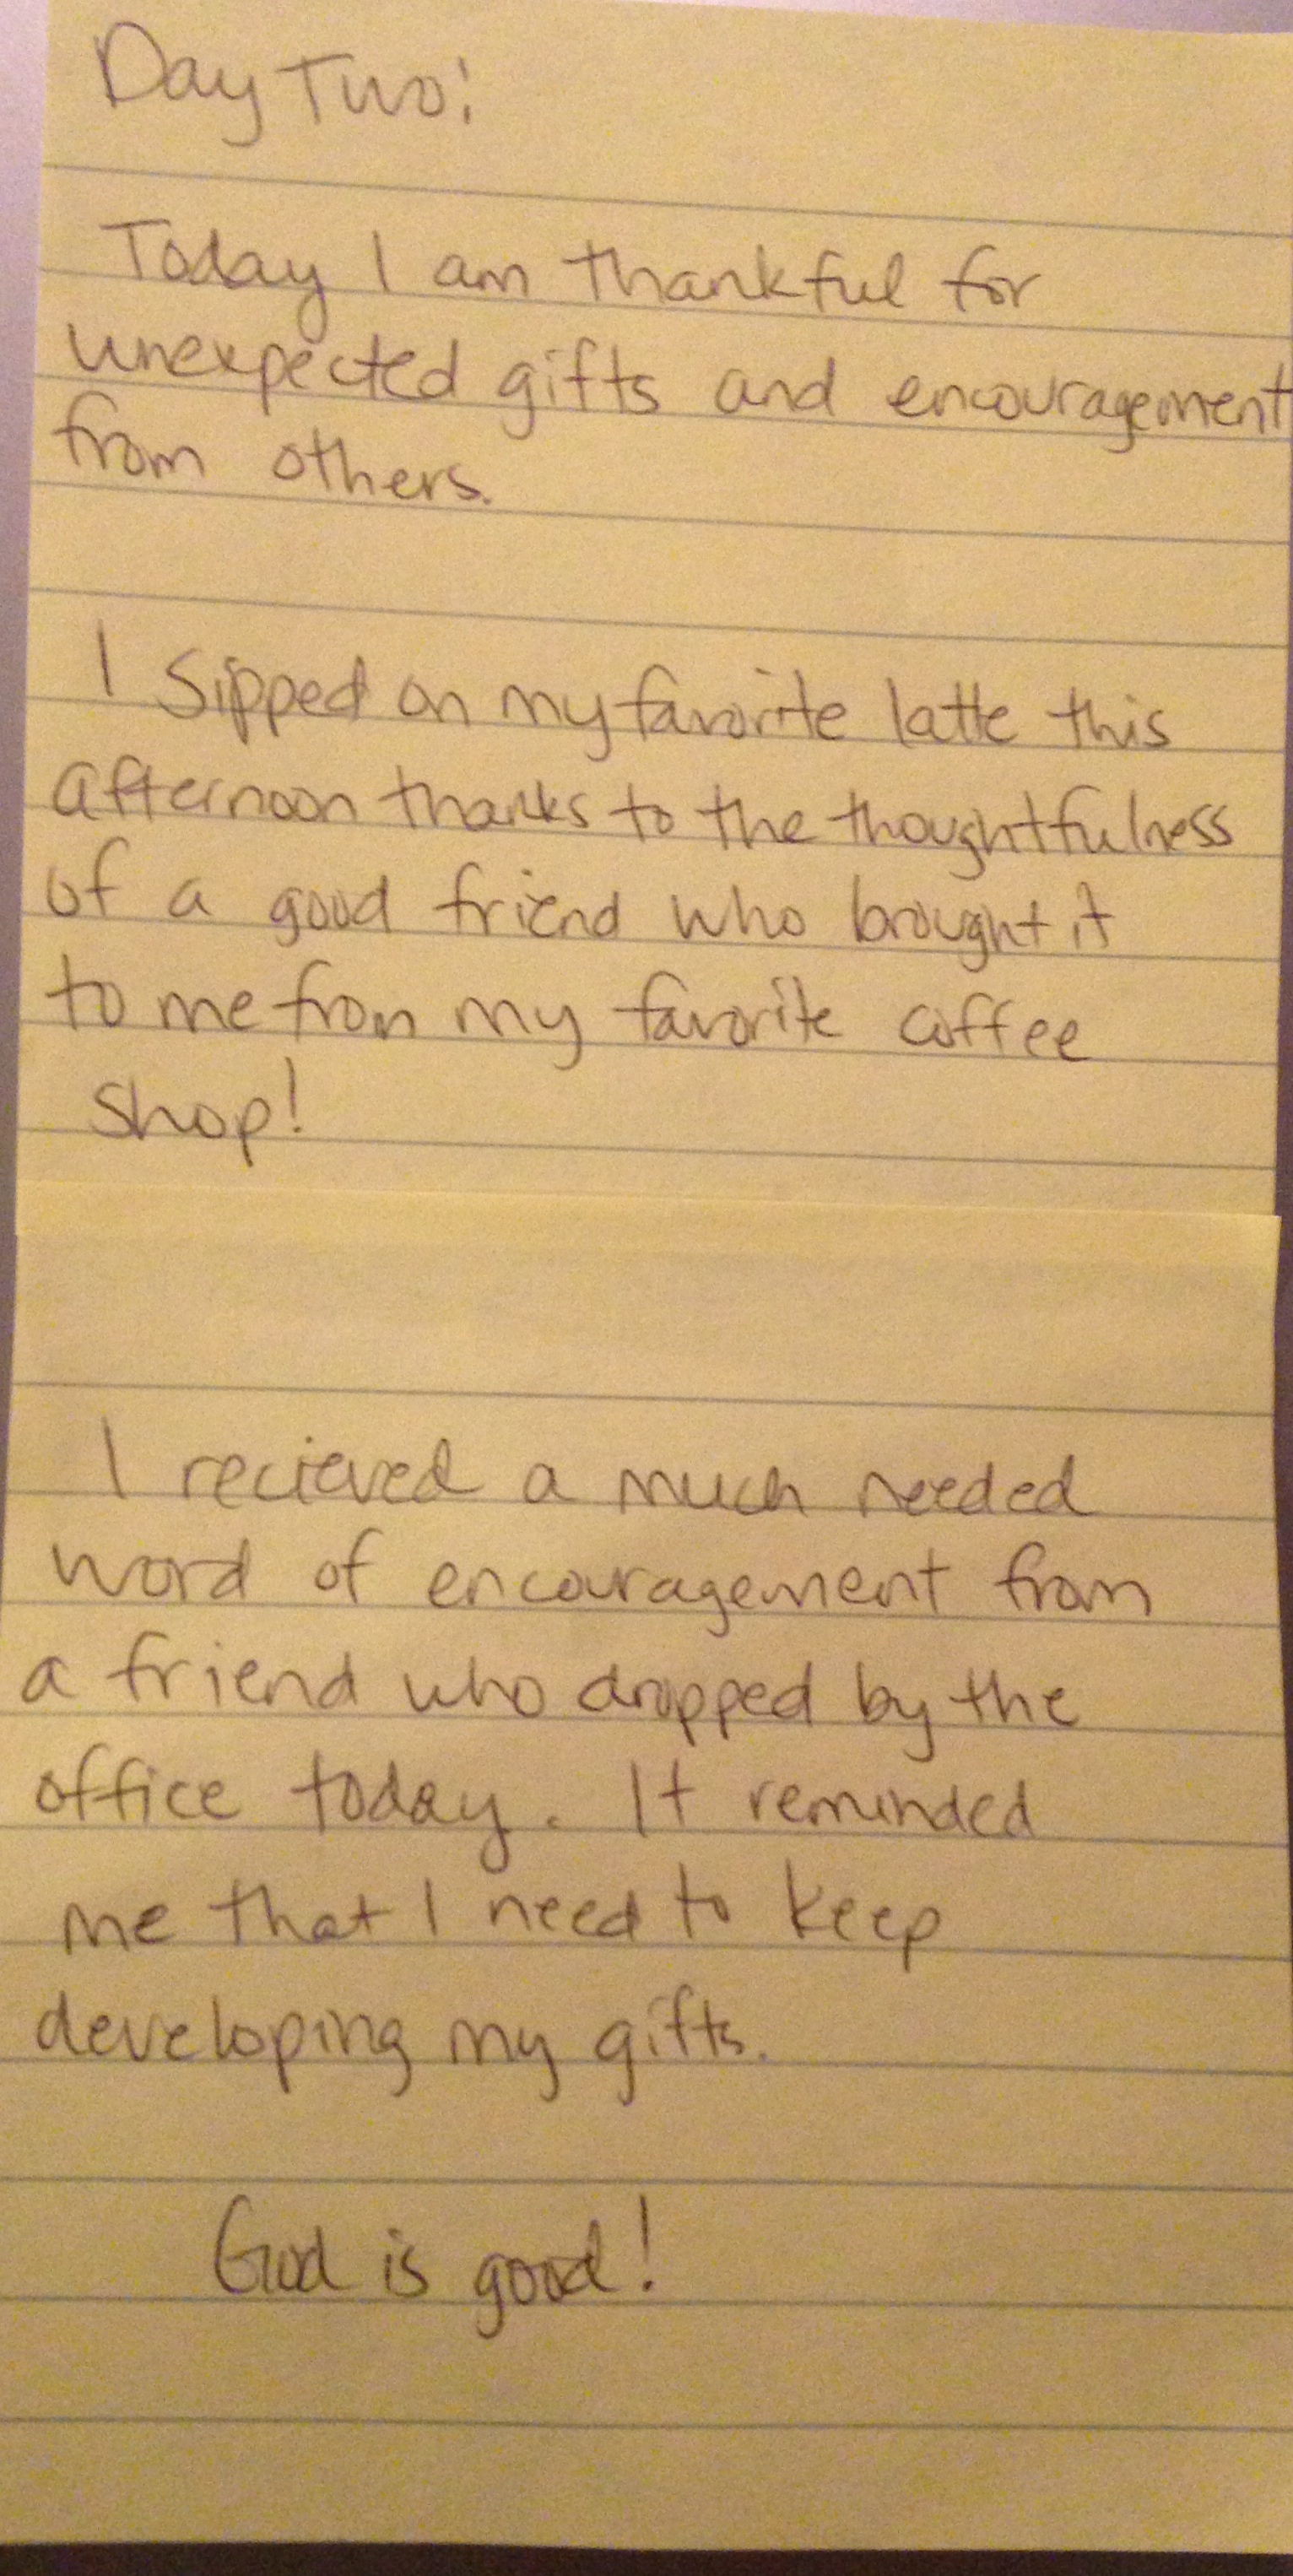 Day Two:
Today I am thankful for
unexpected gifts and encouragement
from others.
I sipped on my favorite latte this
afternoon thanks to the thoughtfulness
of a good friend who brought it
to me from my favorite coffee
shop!
I recieved a much needed
word of encouragement from
a friend who dropped by the
office today. It reminded
me that I need to keep
developing my gifts.
God is good!